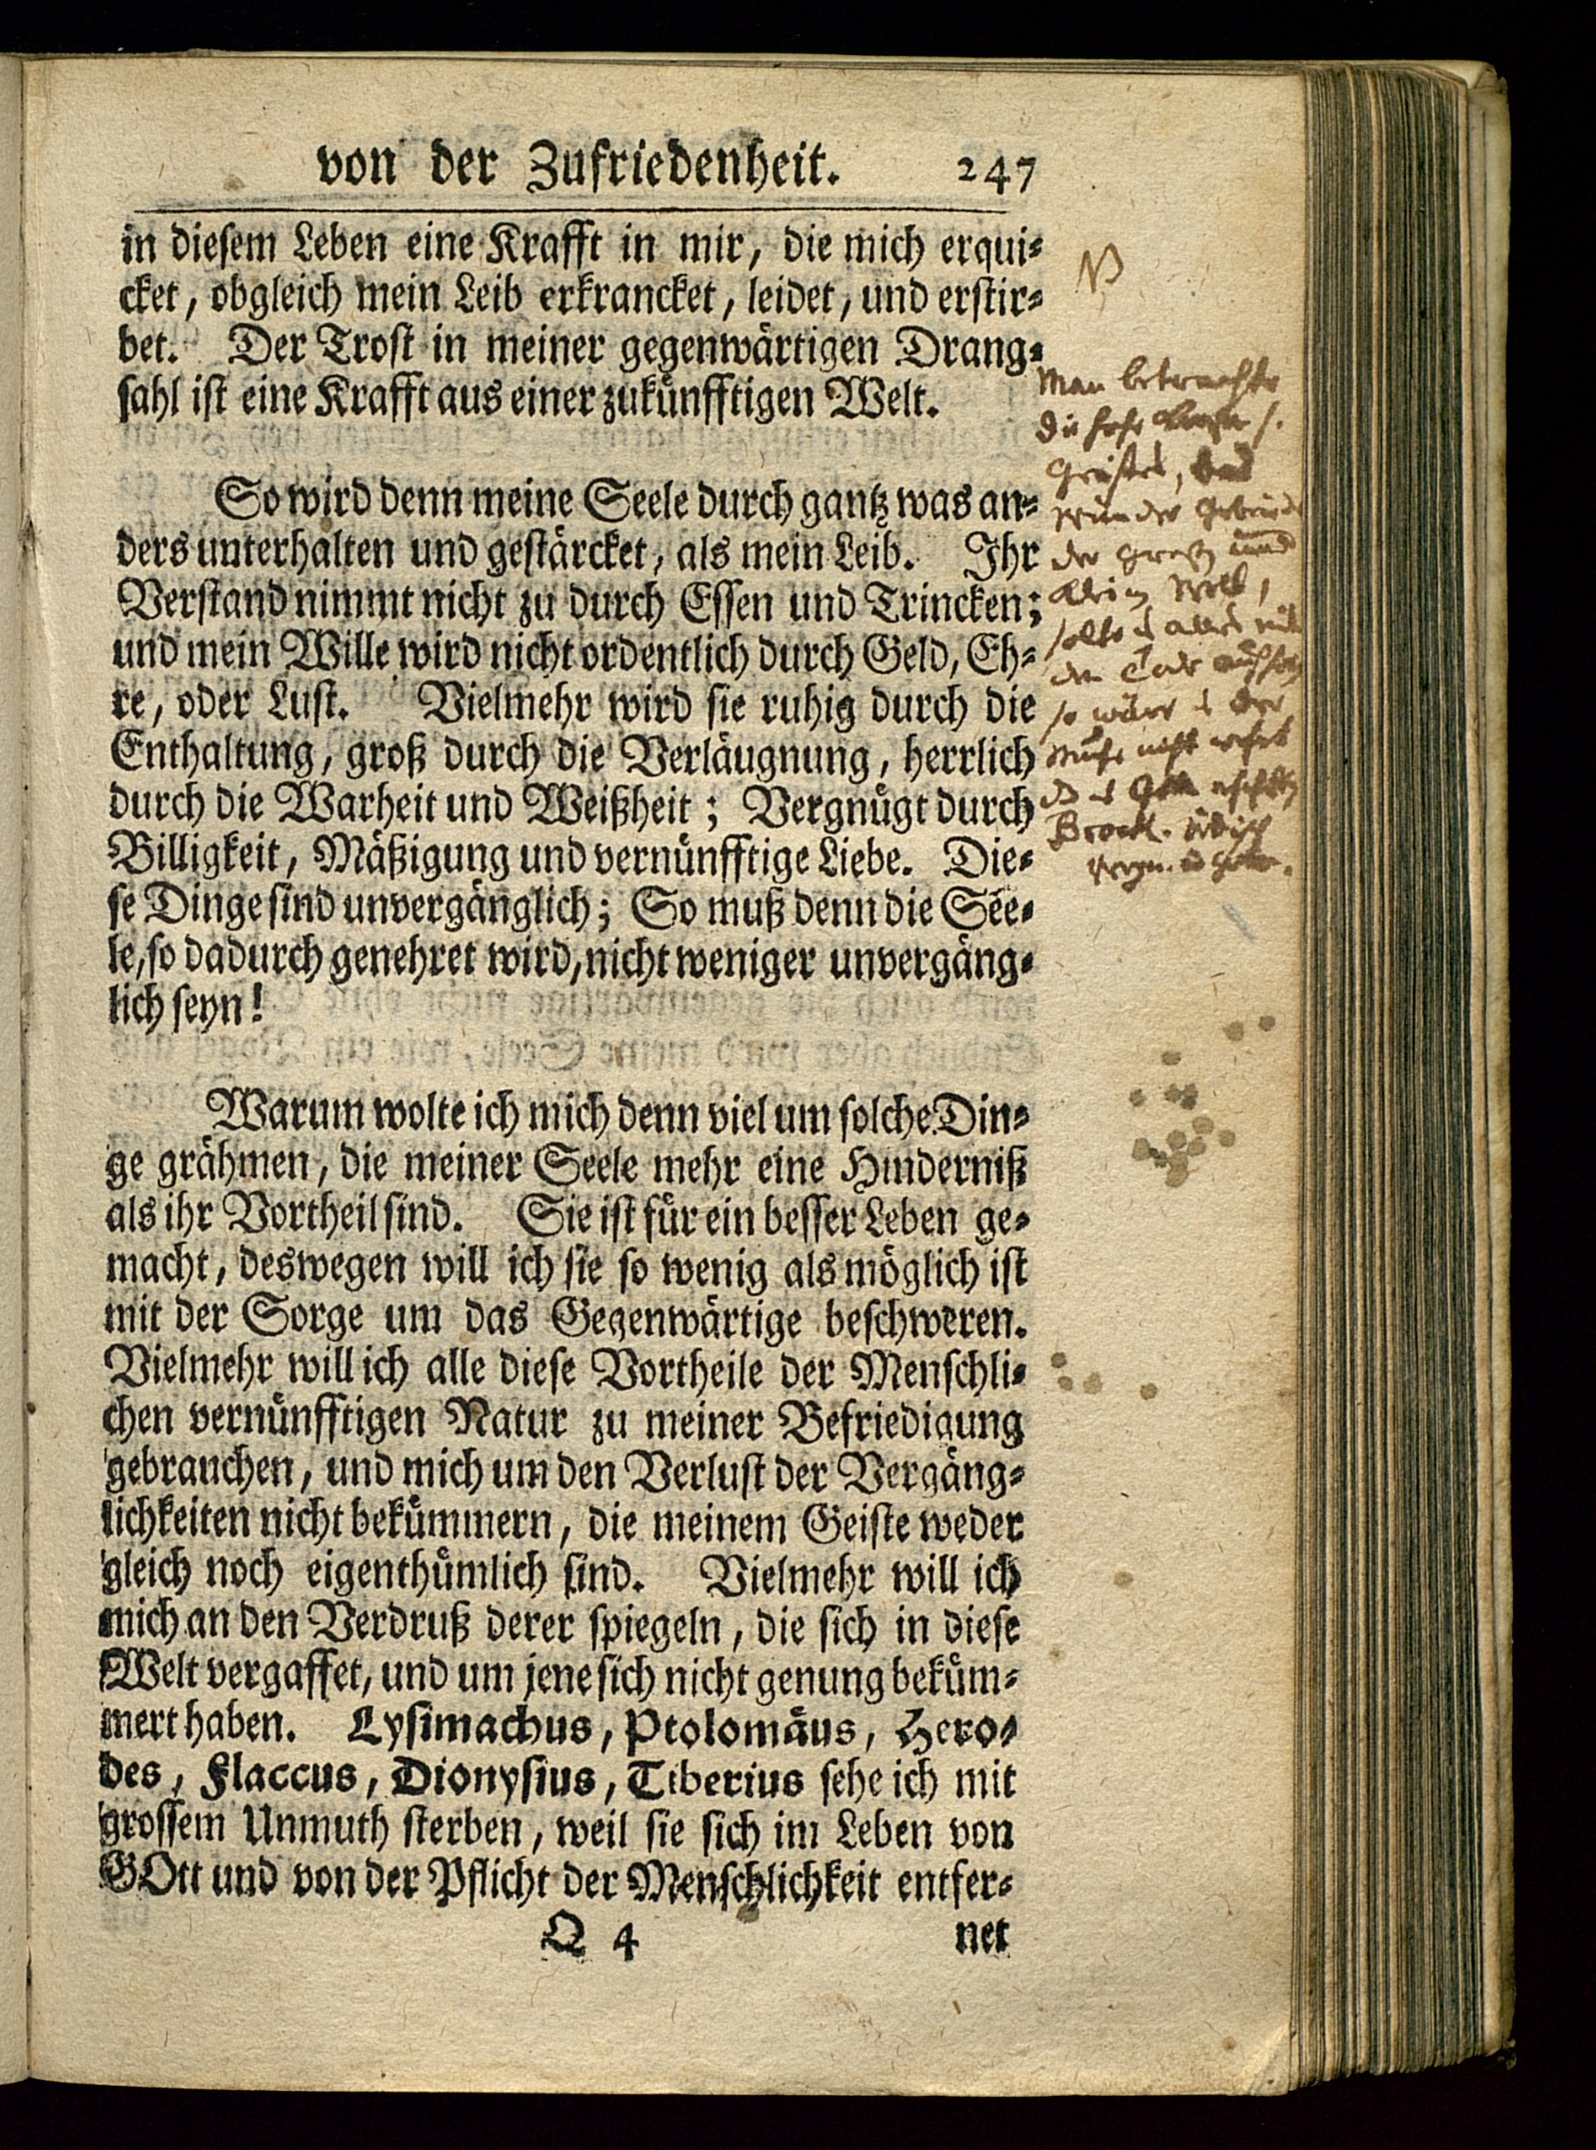 von der Zufriedenheit. 247
in diesem Leben eine Krafft in mir, die mich erqui⸗
cket, obgleich mein Leib erkrancket, leidet, und erstir⸗
bet. Der Trost in meiner gegenwärtigen Drang⸗
sahl ist eine Krafft aus einer zukünfftigen Welt.
So wird denn meine Seele durch gantz was an⸗
ders unterhalten und gestärcket, als mein Leib. Ihr
Verstand nimmt nicht zu durch Essen und Trincken;
und mein Wille wird nicht ordentlich durch Geld, Eh⸗
re, oder Lust. Vielmehr wird sie ruhig durch die
Enthaltung, groß durch die Verläugnung, herrlich
durch die Warheit und Weißheit; Vergnügt durch
Billigkeit, Mäßigung und vernünfftige Liebe. Die⸗
se Dinge sind unvergänglich; So muß denn die See⸗
le, so dadurch genehret wird, nicht weniger unvergäng⸗
lich seyn!
Warum wolte ich mich denn viel um solche Din⸗
ge grähmen, die meiner Seele mehr eine Hinderniß
als ihr Vortheil sind. Sie ist für ein besser Leben ge⸗
macht, deswegen will ich sie so wenig als möglich ist
mit der Sorge um das Gegenwärtige beschweren.
Vielmehr will ich alle diese Vortheile der Menschli⸗
chen vernünfftigen Natur zu meiner Befriedigung
gebrauchen, und mich um den Verlust der Vergäng⸗
lichkeiten nicht bekümmern, die meinem Geiste weder
gleich noch eigenthümlich sind. Vielmehr will ich
mich an den Verdruß derer spiegeln, die sich in diese
Welt vergaffet, und um jene sich nicht genung beküm⸗
mert haben. Lysimachus, Ptolomäus, Hero⸗
des, Flaccus, Dionysius, Tiberius sehe ich mit
grossem Unmuth sterben, weil sie sich im Leben von
GOtt und von der Pflicht der Menschlichkeit entfer⸗
Q 4 net
NB
Man betrachte
die hohe
Geistes, das
Wunder Gebäude
der
Welt,
solte
den Tode
so wäre es der
Mühe nicht wehrt
Brock. irdisch
Vergn. in Gott.